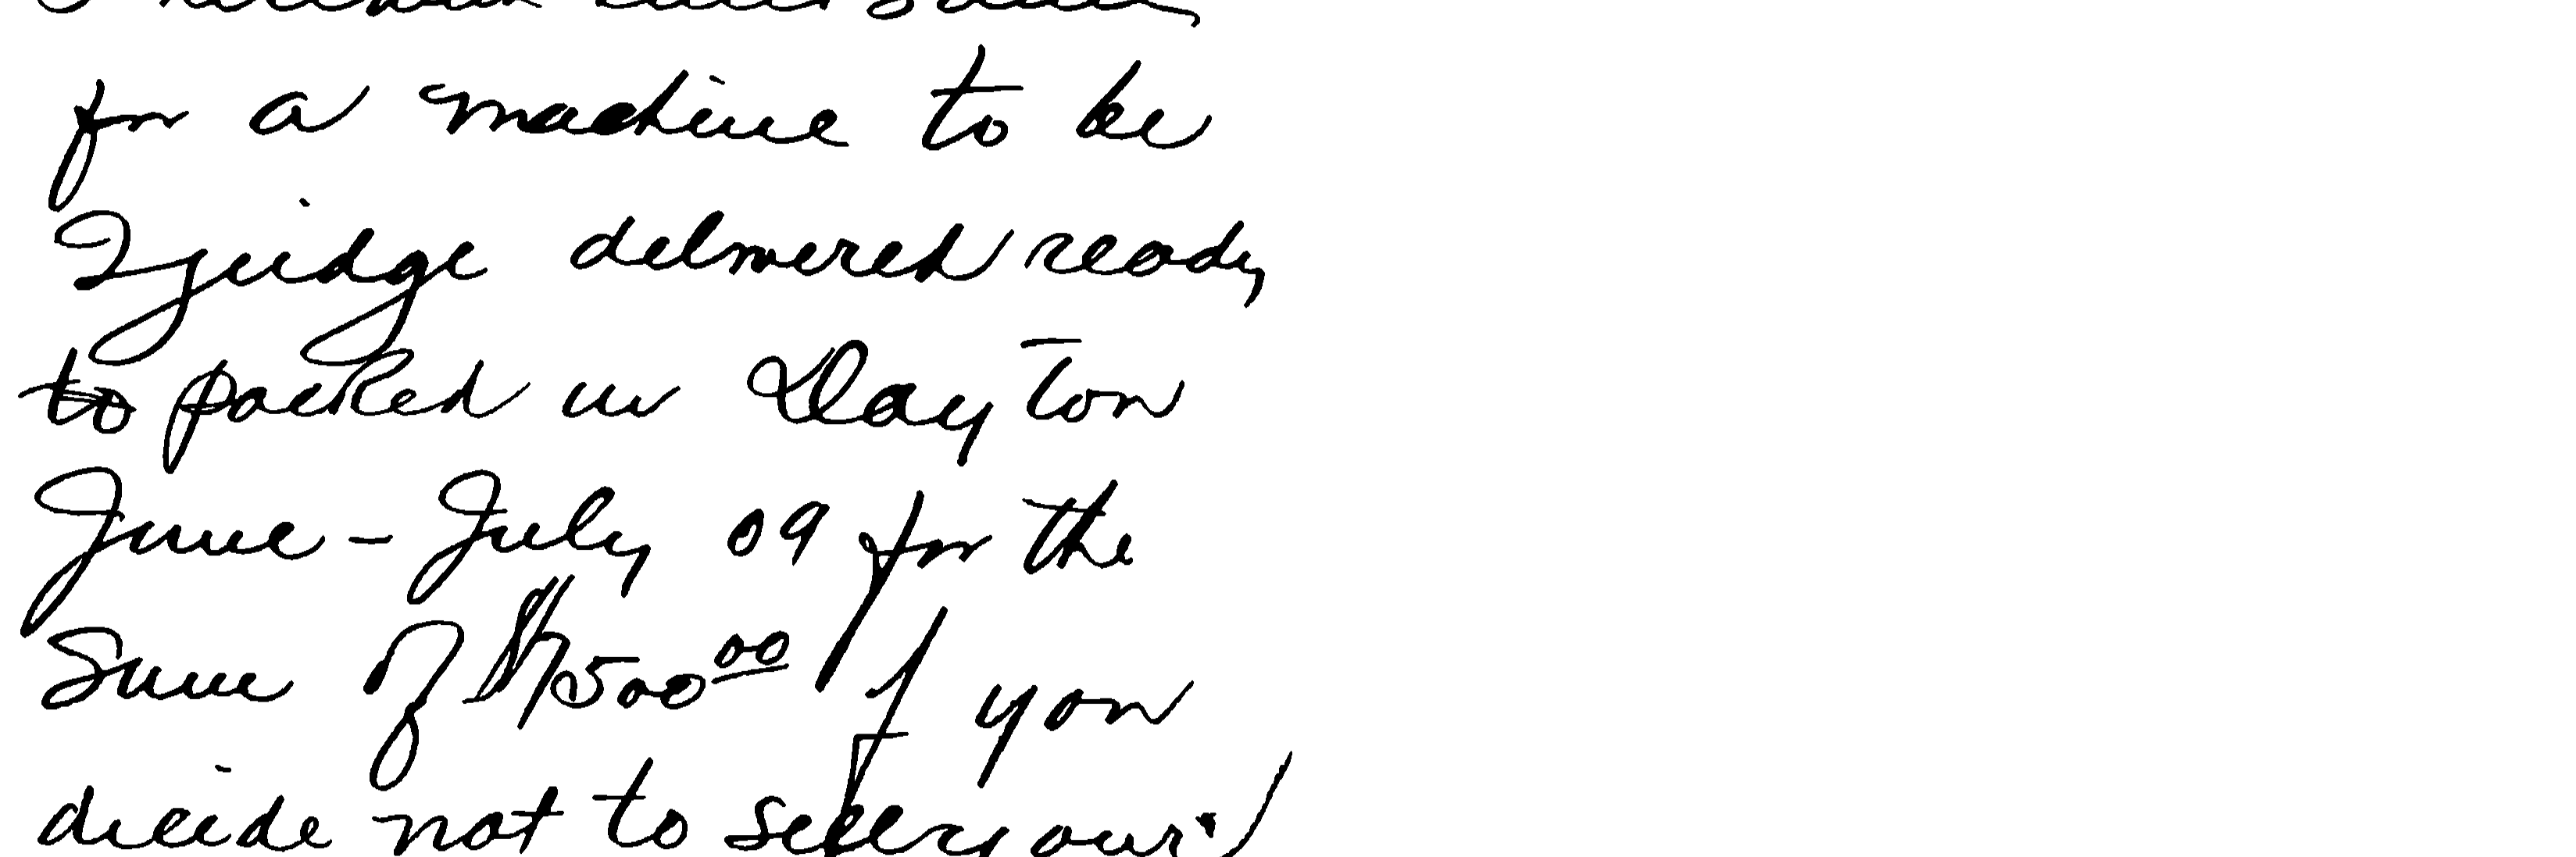 for a machine to be
I judge delivered ready
to packed in Dayton
June - July 09 for the
Sum of $7500.00 If you
decide not to sell your